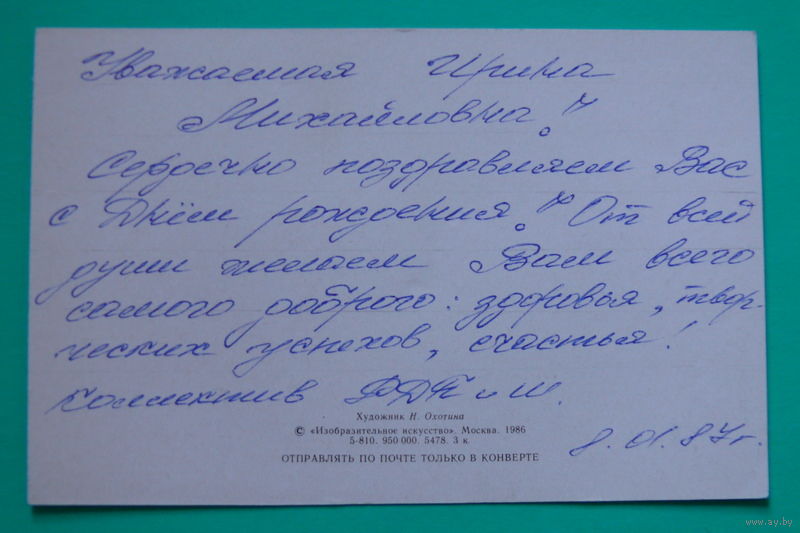 Уважаемая Ирина
Михайловна!
Сердечно поздравляем Вас
с Днём рождения! От всей
души желаем Вам всего
самого доброго: здоровья, твор-
ческих успехов, счастья!
Коллектив РДП и Ш.
Художник Н. Охотина
© «Изобразительное искусство». Москва. 1986
5-810. 950 000. 5478. 3 к.
8.01.87г.
ОТПРАВЛЯТЬ ПО ПОЧТЕ ТОЛЬКО В КОНВЕРТЕ
www.ay.by